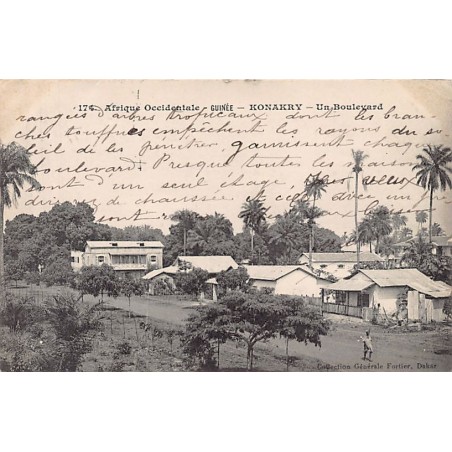 174. Afrique Occidentale - GUINÉE - KONAKRY - Un Boulevard
rangées d'arbres tropicaux dont les bran-
ches touffues empêchent les rayons du so-
leil de les pénétrer garnissent chaque
boulevard. Presque toutes les maisons
sont d'un seul étage, car
sont
Collection Générale Fortier, Dakar